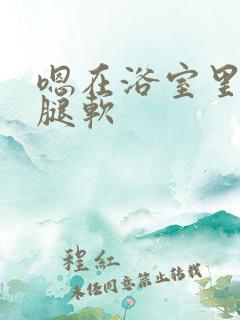 嗯在浴室里
腿软
程红
未经同意禁止转载